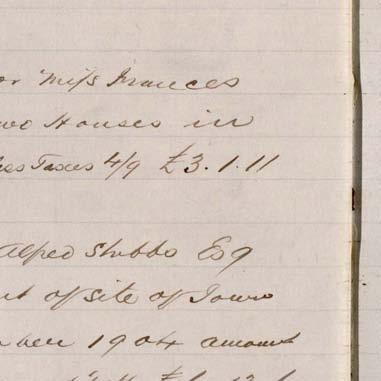 or Miss Frances
two Houses in
less Taxes 4/9 £3.1.11
Alfred Stubbs Esq
of site of Town
1904 amount